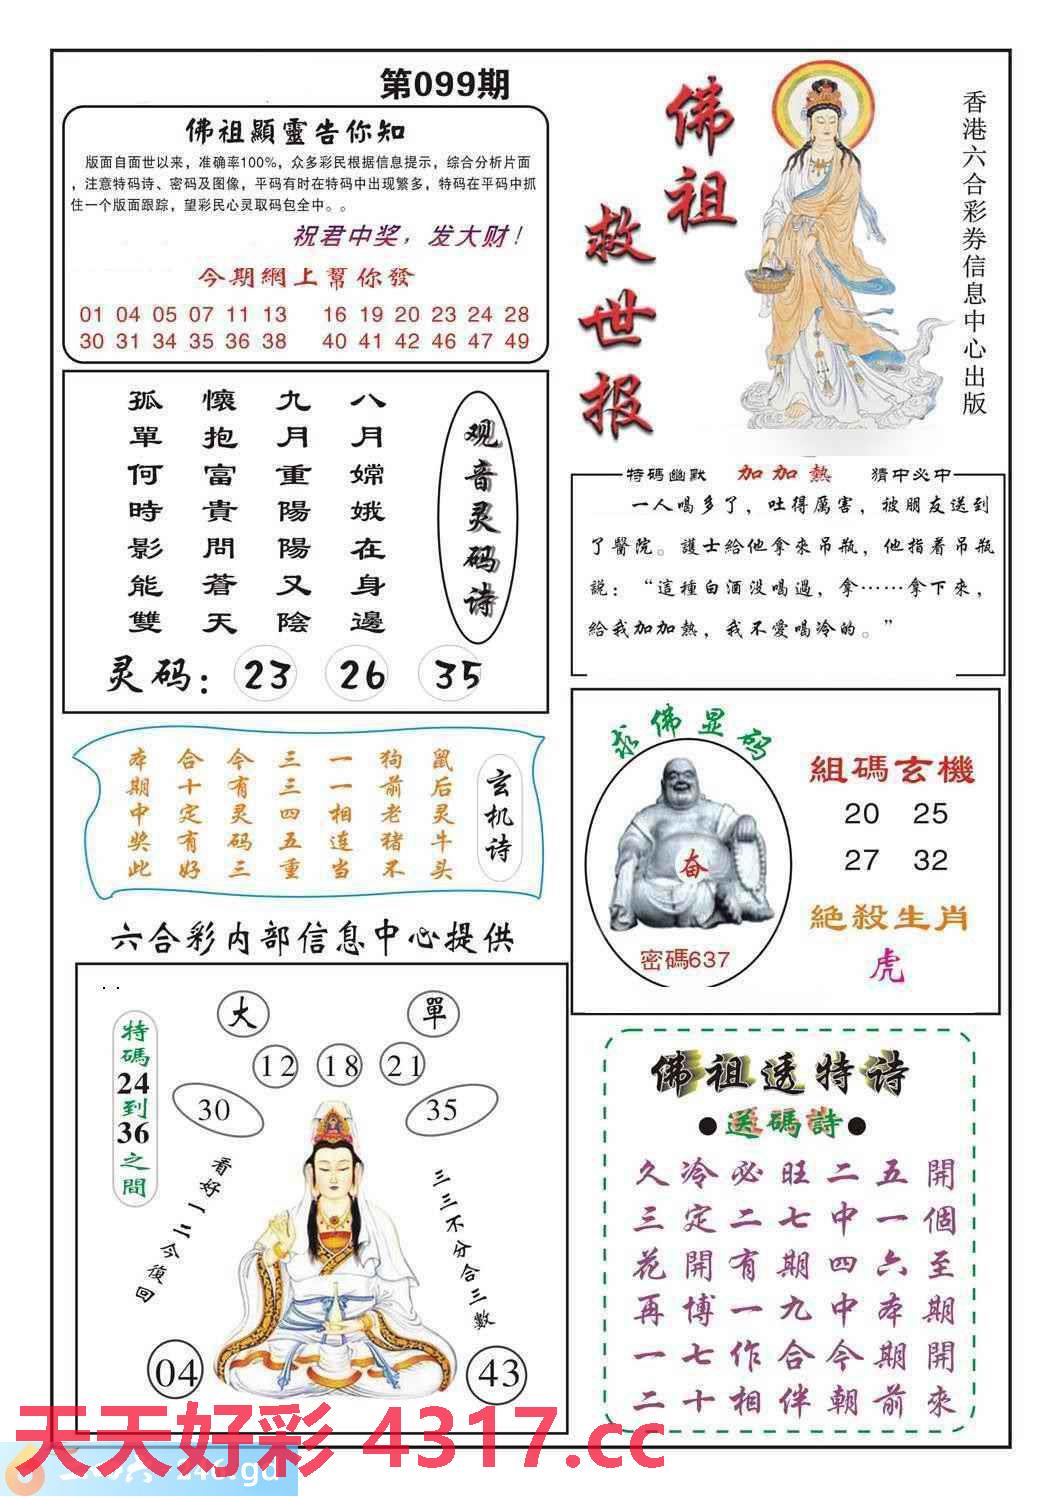 第099期
佛祖顯靈告你知
版面自面世以来，准确率100%，众多彩民根据信息提示，综合分析片面
，注意特码诗、密码及图像，平码有时在特码中出现繁多，特码在平码中抓
住一个版面跟踪，望彩民心灵取码包全中。。
祝君中奖，发大财！
今期網上幫你發
01 04 05 07 11 13 16 19 20 23 24 28
30 31 34 35 36 38 40 41 42 46 47 49
佛祖
救世报
香港六合彩券信息中心出版
观音灵码诗
八月嫦娥在身邊
九月重陽陽又陰
懷抱富貴問蒼天
孤單何時影能雙
灵码：23 26 35
特碼幽默 加加熱 猜中必中
一人喝多了，吐得厲害，被朋友送到
了醫院。護士給他拿來吊瓶，他指着吊瓶
説：“這種白酒没喝過，拿……拿下來，
給我加加熱，我不愛喝冷的。”
玄机诗
鼠后灵牛头
狗前老猪不
一一相连当
三三四五重
今有灵码三
合十定有好
本期中奖此
求佛显码
奋
密碼637
組碼玄機
20 25
27 32
絕殺生肖
虎
六合彩内部信息中心提供
特碼24到36之間
大 單
12 18 21
30 35
看好一二今復回
三三不分合三數
04 43
佛祖透特诗
●送碼詩●
久冷必旺二五開
三定二七中一個
花開有期四六至
再博一九中本期
一七作合今期開
二十相伴朝前來
天天好彩 4317.cc
246.gd